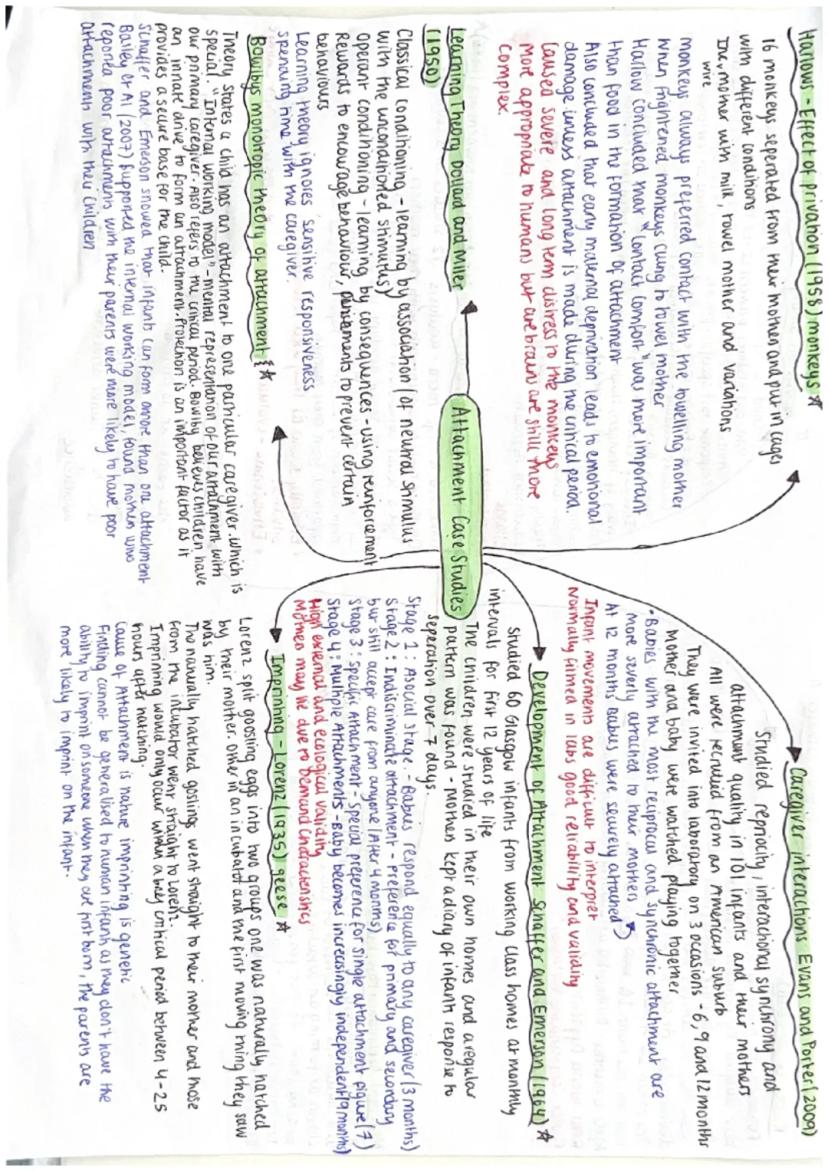 Attachment Case Studies
Harlows - Effect of privation (1958) monkeys
16 monkeys seperated from their mother and put in cages
with different conditions
Ine, mother with milk, towel mother and variations
wire
monkeys always preferred contact with the towelling mother
When frightened monkeys clung to towel mother
Harlow concluded that "contact comfort" was more important
than food in the formation of attachment
Also concluded that early maternal deprivation leads to emotional
damage unless attachment is made during the critical period.
Caused severe and long term distress to the monkeys
More appropriate to humans but are brains are still more
complex.
Learning Theory Dollard and Miller
(1950)
Classical conditioning - learning by association (of neutral stimulus
with the unconditioned stimulus)
Operant conditioning - learning by consequences - using reinforcement
Rewards to encourage behaviour, punishments to prevent certain
behaviours
Learning theory ignores sensitive responsiveness
spending time with the caregiver.
Bowlbys monotropic theory of attachment
Theory states a child has an attachment to one particular caregiver. Which is
special. "Internal working model" - mental representation of our attachment with
our primary caregiver. Also refers to the critical period. Bowlby believes children have
an innate drive to form an attachment. Protection is an important factor as it
provides a secure base for the child.
Schaffer and Emerson showed that infants can form amore than one attachment
Bailey et Al (2007) supported the internal working model, found mothers who
reported poor attachments with their parents were more likely to have poor
attachments with their children
Caregiver interactions Evans and Porter (2009)
Studied reprocity, interactional synchrony and
attachment quality in 101 infants and their mothers
All were recruited from an American suburb
They were invited into laboratory on 3 occasions - 6, 9 and 12 months
Mother and baby were watched playing together
- Babies with the most reciprocal and synchronic attachment are
more severly attached to their mothers
At 12 months babies were securely attached
Infant movements are difficult to interpret
Normally filmed in labs good reliability and validity
Development of Attachment Schaffer and Emerson (1964)
Studied 60 Glasgow infants from working class homes at monthly
intervals for first 12 years of life
The children were studied in their own homes and a regular
pattern was found - Mothers kept a diary of infants response to
seperation over 7 days.
Stage 1: Asocial stage - Babies respond equally to any caregiver (3 months)
Stage 2: Indiscriminate attachment - Preference for primary and secondary
but still accept care from anyone (After 4 months)
Stage 3: Specific Attachment - Special preference for single attachment figure (7)
Stage 4: Multiple Attachments - Baby becomes increasingly independent (9 months)
High external and ecological validity
Mothers may lie due to Demand Characteristics
Imprinting - Lorenz (1935) geese
Lorenz split goosling eggs into two groups one was naturally hatched
by their mother, other in an incubator and the first moving thing they saw
was him.
The naturally hatched goslings went straight to their mother and those
from the incubator went straight to Lorenz.
Imprinting would only occur within a critical period between 4-25
hours after hatching.
Cause of Attachment is nature imprinting is genetic
Finding cannot be generalised to human infants as they don't have the
ability to imprint on someone when they are first born, the parents are
more likely to imprint on the infant.